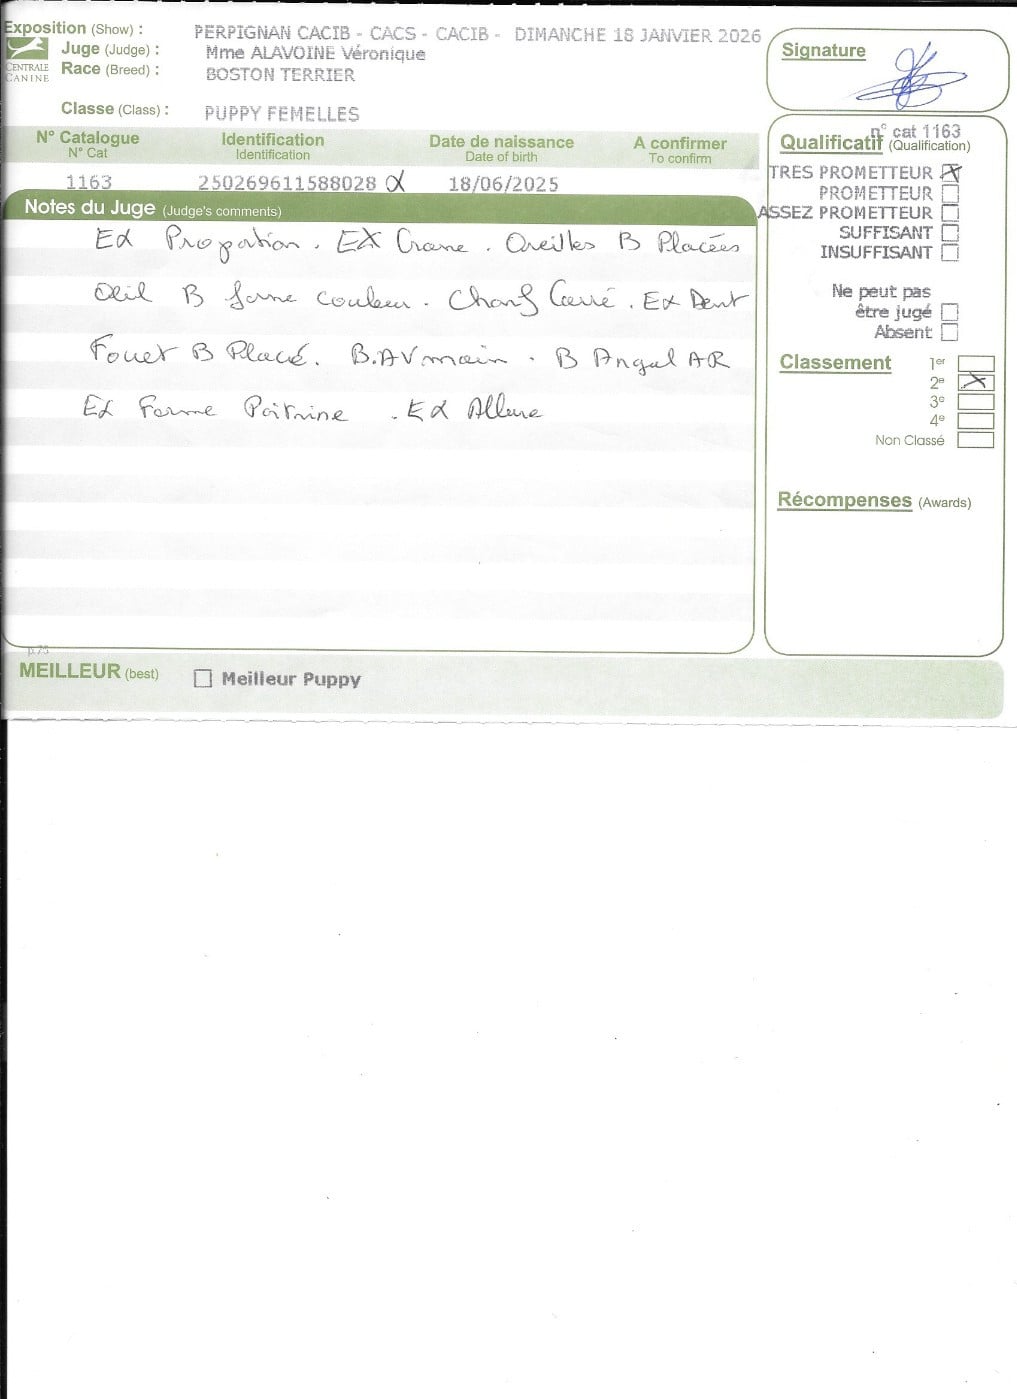 Exposition (Show) : PERPIGNAN CACIB - CACS - CACIB - DIMANCHE 18 JANVIER 2026
Juge (Judge) : Mme ALAVOINE Véronique
CENTRALE CANINE
Race (Breed) : BOSTON TERRIER
Classe (Class) : PUPPY FEMELLES
Signature
N° Catalogue Identification Date de naissance A confirmer
N° Cat Identification Date of birth To confirm
1163 250269611588028 18/06/2025
Notes du Juge (Judge's comments)
Ex Proportion . EX Crane . Oreilles B Placées
Œil B forme couleur . Chanf Carré . Ex Dent
Fouet B Placé . B.AV main . B Angul AR
Ex Forme Poitrine . Ex Allure
n° cat 1163
Qualificatif (Qualification)
TRES PROMETTEUR
PROMETTEUR
ASSEZ PROMETTEUR
SUFFISANT
INSUFFISANT
Ne peut pas
être jugé
Absent
Classement 1er
2e
3e
4e
Non Classé
Récompenses (Awards)
p.75
MEILLEUR (best) Meilleur Puppy